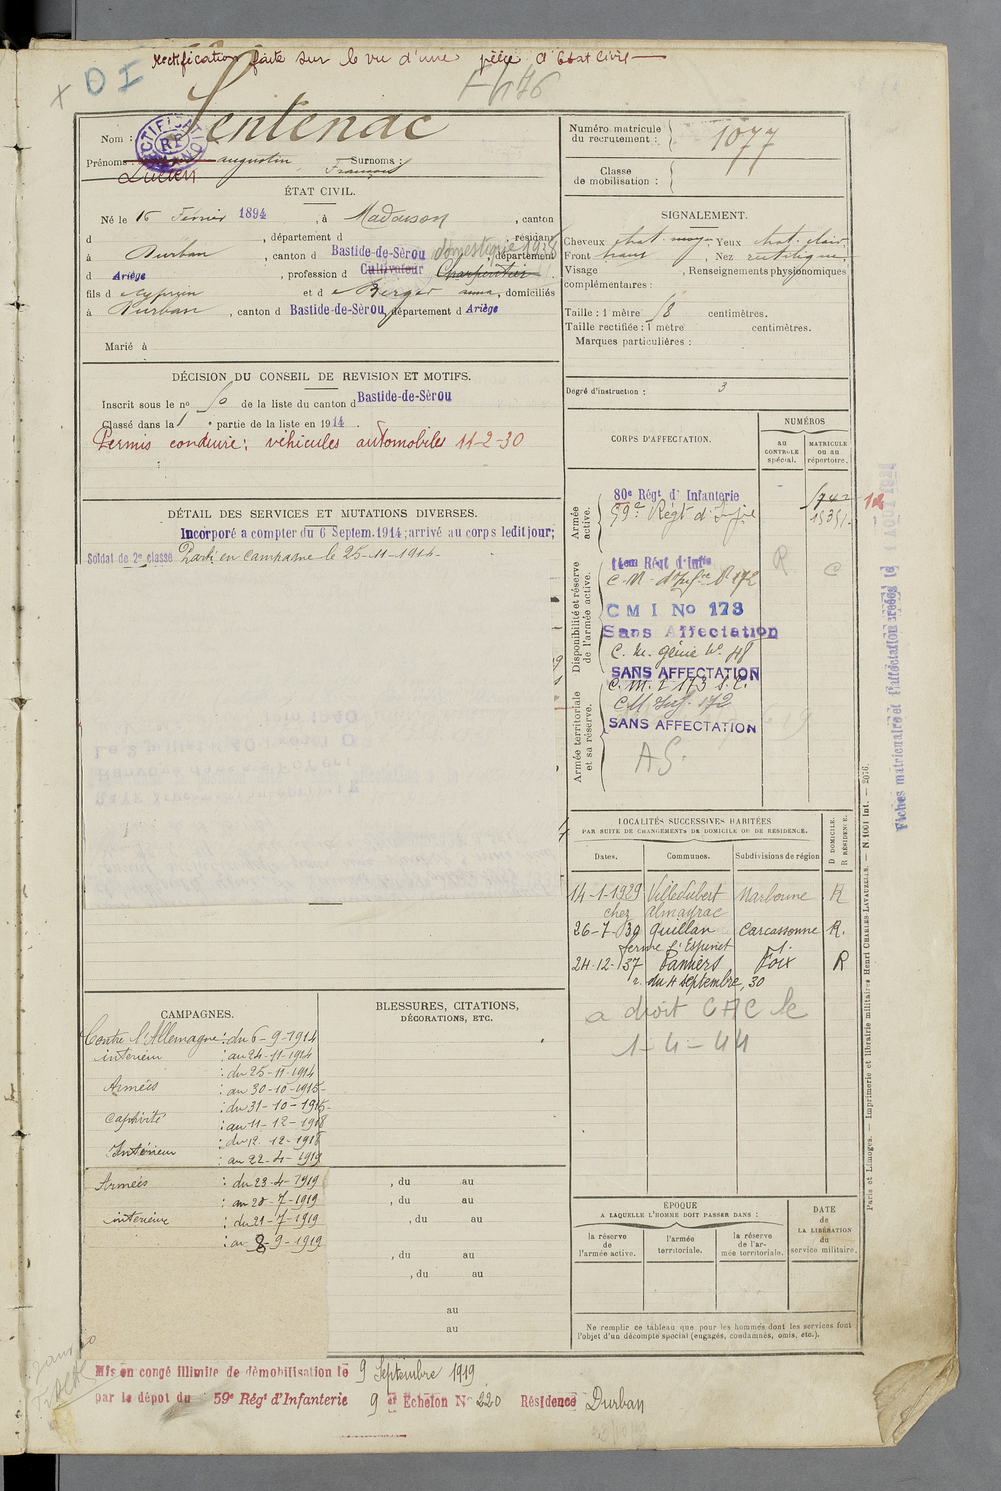 Rectification faite sur le vu d'une pièce d'Etat Civil
OI
Nom : Sentenac
RECTIFICATION
Prénoms : Lucien augustin François Surnoms :
ÉTAT CIVIL.
Né le 16 Février 1894, à Madasson, canton
d , département d , résidant
à Durban, canton d Bastide-de-Sèrou domestique 1938 département
d Ariège, profession d Cultivateur Charpentier
fils d Cyprien et d Berger anna, domiciliés
à Durban, canton d Bastide-de-Sèrou, département d Ariège
Marié à
DÉCISION DU CONSEIL DE REVISION ET MOTIFS.
Inscrit sous le no 50 de la liste du canton d Bastide-de-Sèrou
Classé dans la 1e partie de la liste en 1914.
Permis conduire: véhicules automobiles 11-2-30
DÉTAIL DES SERVICES ET MUTATIONS DIVERSES.
Incorporé a compter du 6 Septem. 1914; arrivé au corps ledit jour;
Soldat de 2e classe Parti en campagne le 25-11-1914
CAMPAGNES.
Contre l'Allemagne : du 6-9-1914
intérieur : au 24-11-1914
: du 25-11-1914
Armées : au 30-10-1915
: du 31-10-1915
Captivité : au 11-12-1918
: du 12-12-1918
Intérieur : au 22-4-1919
Armées : du 23-4-1919
: au 20-7-1919
intérieur : du 21-7-1919
: au 8-9-1919
BLESSURES, CITATIONS,
DÉCORATIONS, ETC.
, du au
, du au
, du au
, du au
, du au
au
au
Mis en congé illimité de démobilisation le 9 Septembre 1919
par le dépôt du 59e Régt d'Infanterie 9 et Echelon No 220 Résidence Durban
Numéro matricule du recrutement : 1077
Classe de mobilisation :
SIGNALEMENT.
Cheveux chat. moyen, Yeux chat. clair
Front , Nez rectiligne,
Visage , Renseignements physionomiques
complémentaires :
Taille : 1 mètre 58 centimètres.
Taille rectifiée : 1 mètre centimètres.
Marques particulières :
Degré d'instruction : 3
CORPS D'AFFECTATION.
NUMÉROS
au CONTROLE spécial.
MATRICULE ou au répertoire.
Armée active.
80e Régt d'Infanterie
59e Régt d'Infie 15351
12
Disponibilité et réserve de l'armée active.
14eme Régt d'Infie
C. M. d'Infre No 172 R C
C M I No 173
Sans Affectation
C. M. génie No 48
SANS AFFECTATION
Armée territoriale et sa réserve.
C. M. I 173 S. C.
CM Inf. 172
SANS AFFECTATION
A S.
LOCALITÉS SUCCESSIVES HABITÉES
PAR SUITE DE CHANGEMENTS DE DOMICILE OU DE RÉSIDENCE.
Dates. Communes. Subdivisions de région D DOMICILE. R RÉSIDENCE.
14-1-1929 Villedubert Narbonne R
chez Almayrac
26-7-30 Quillan Carcassonne R.
ferme l'Espinet
24-12-37 Pamiers Foix R
r. du 4 septembre, 30
a droit CAC le
1-4-44
ÉPOQUE
A LAQUELLE L'HOMME DOIT PASSER DANS :
la réserve de l'armée active.
l'armée territoriale.
la réserve de l'armée territoriale.
DATE de LA LIBÉRATION du service militaire.
Ne remplir ce tableau que pour les hommes dont les services font
l'objet d'un décompte spécial (engagés, condamnés, omis, etc.).
Paris et Limoges. — Imprimerie et librairie militaires Henri CHARLES-LAVAUZELLE. — N 1001 Int. — 2076.
Fiches matriculaire et d'affectation créées le 1 AOUT 19